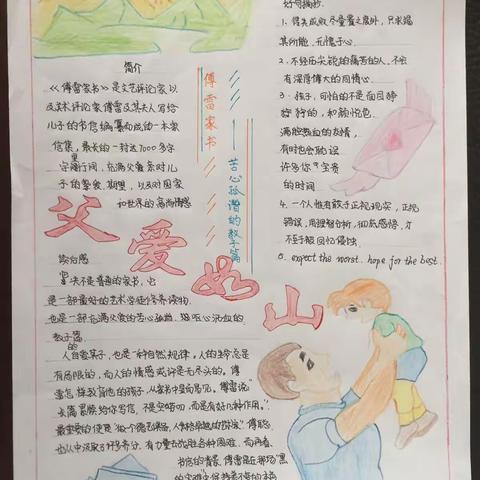 简介
《傅雷家书》是文艺评论家以
及美术评论家傅雷及其夫人写给
儿子的书信编纂而成的一本家
信集，最长的一封达7000多字
字里行间，充满父爱对儿
子的挚爱，期望，以及对国家
和世界的高尚情感
傅雷家书
苦心孤诣的教子篇
父爱如山
好句摘抄：
1、得失成败尽量置之度外，只求竭
其所能，无愧于心
2、不经历尖锐的痛苦的人，不会
有深厚博大的同情心。
3、孩子，可怕的不是面目狰
狞的，和颜悦色
满腔热血的友情，
有时也会耽误
许多你宝贵
的时间
4、一个人惟有敢于正视现实，正视
错误，用理智分析，彻底感悟，才
不至于被回忆侵蚀
5. expect the worst. hope for the best.
读后感
家书不是普通的家书，它
是一部最好的艺术学徒修养读物，
也是一部充满父爱的苦心孤诣、呕心沥血的
教子篇
人自爱其子，也是一种自然的规律。人的生命总是
有局限的，而人的情感或许是无尽头的。傅
雷怎样教育他的孩子，从家书中显而易见。傅雷说"
长篇累牍给你写信，不是空唠叨，而是有好几种作用。"
最重要的便是"做个德艺兼备、人格卓越的艺术家"傅聪
也从中汲取了好多养分，有力量去战胜各种困难
书信的背景，傅雷是在那场"黑